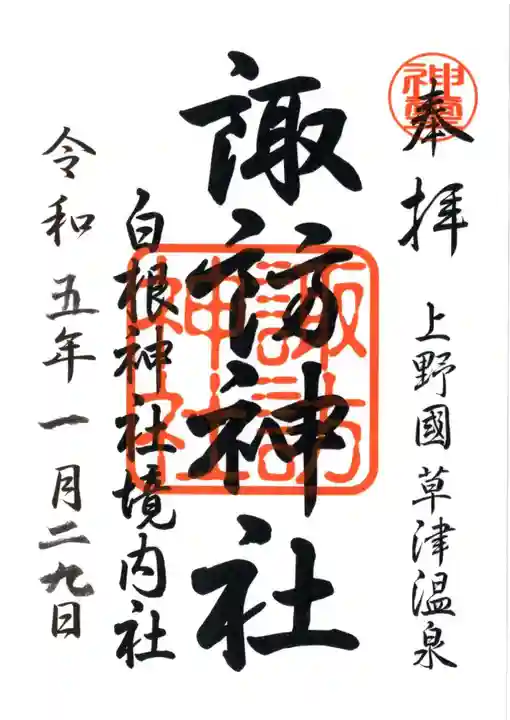 奉拝
上野國草津温泉
諏訪神社
諏訪神社
白根神社境内社
令和五年一月二九日